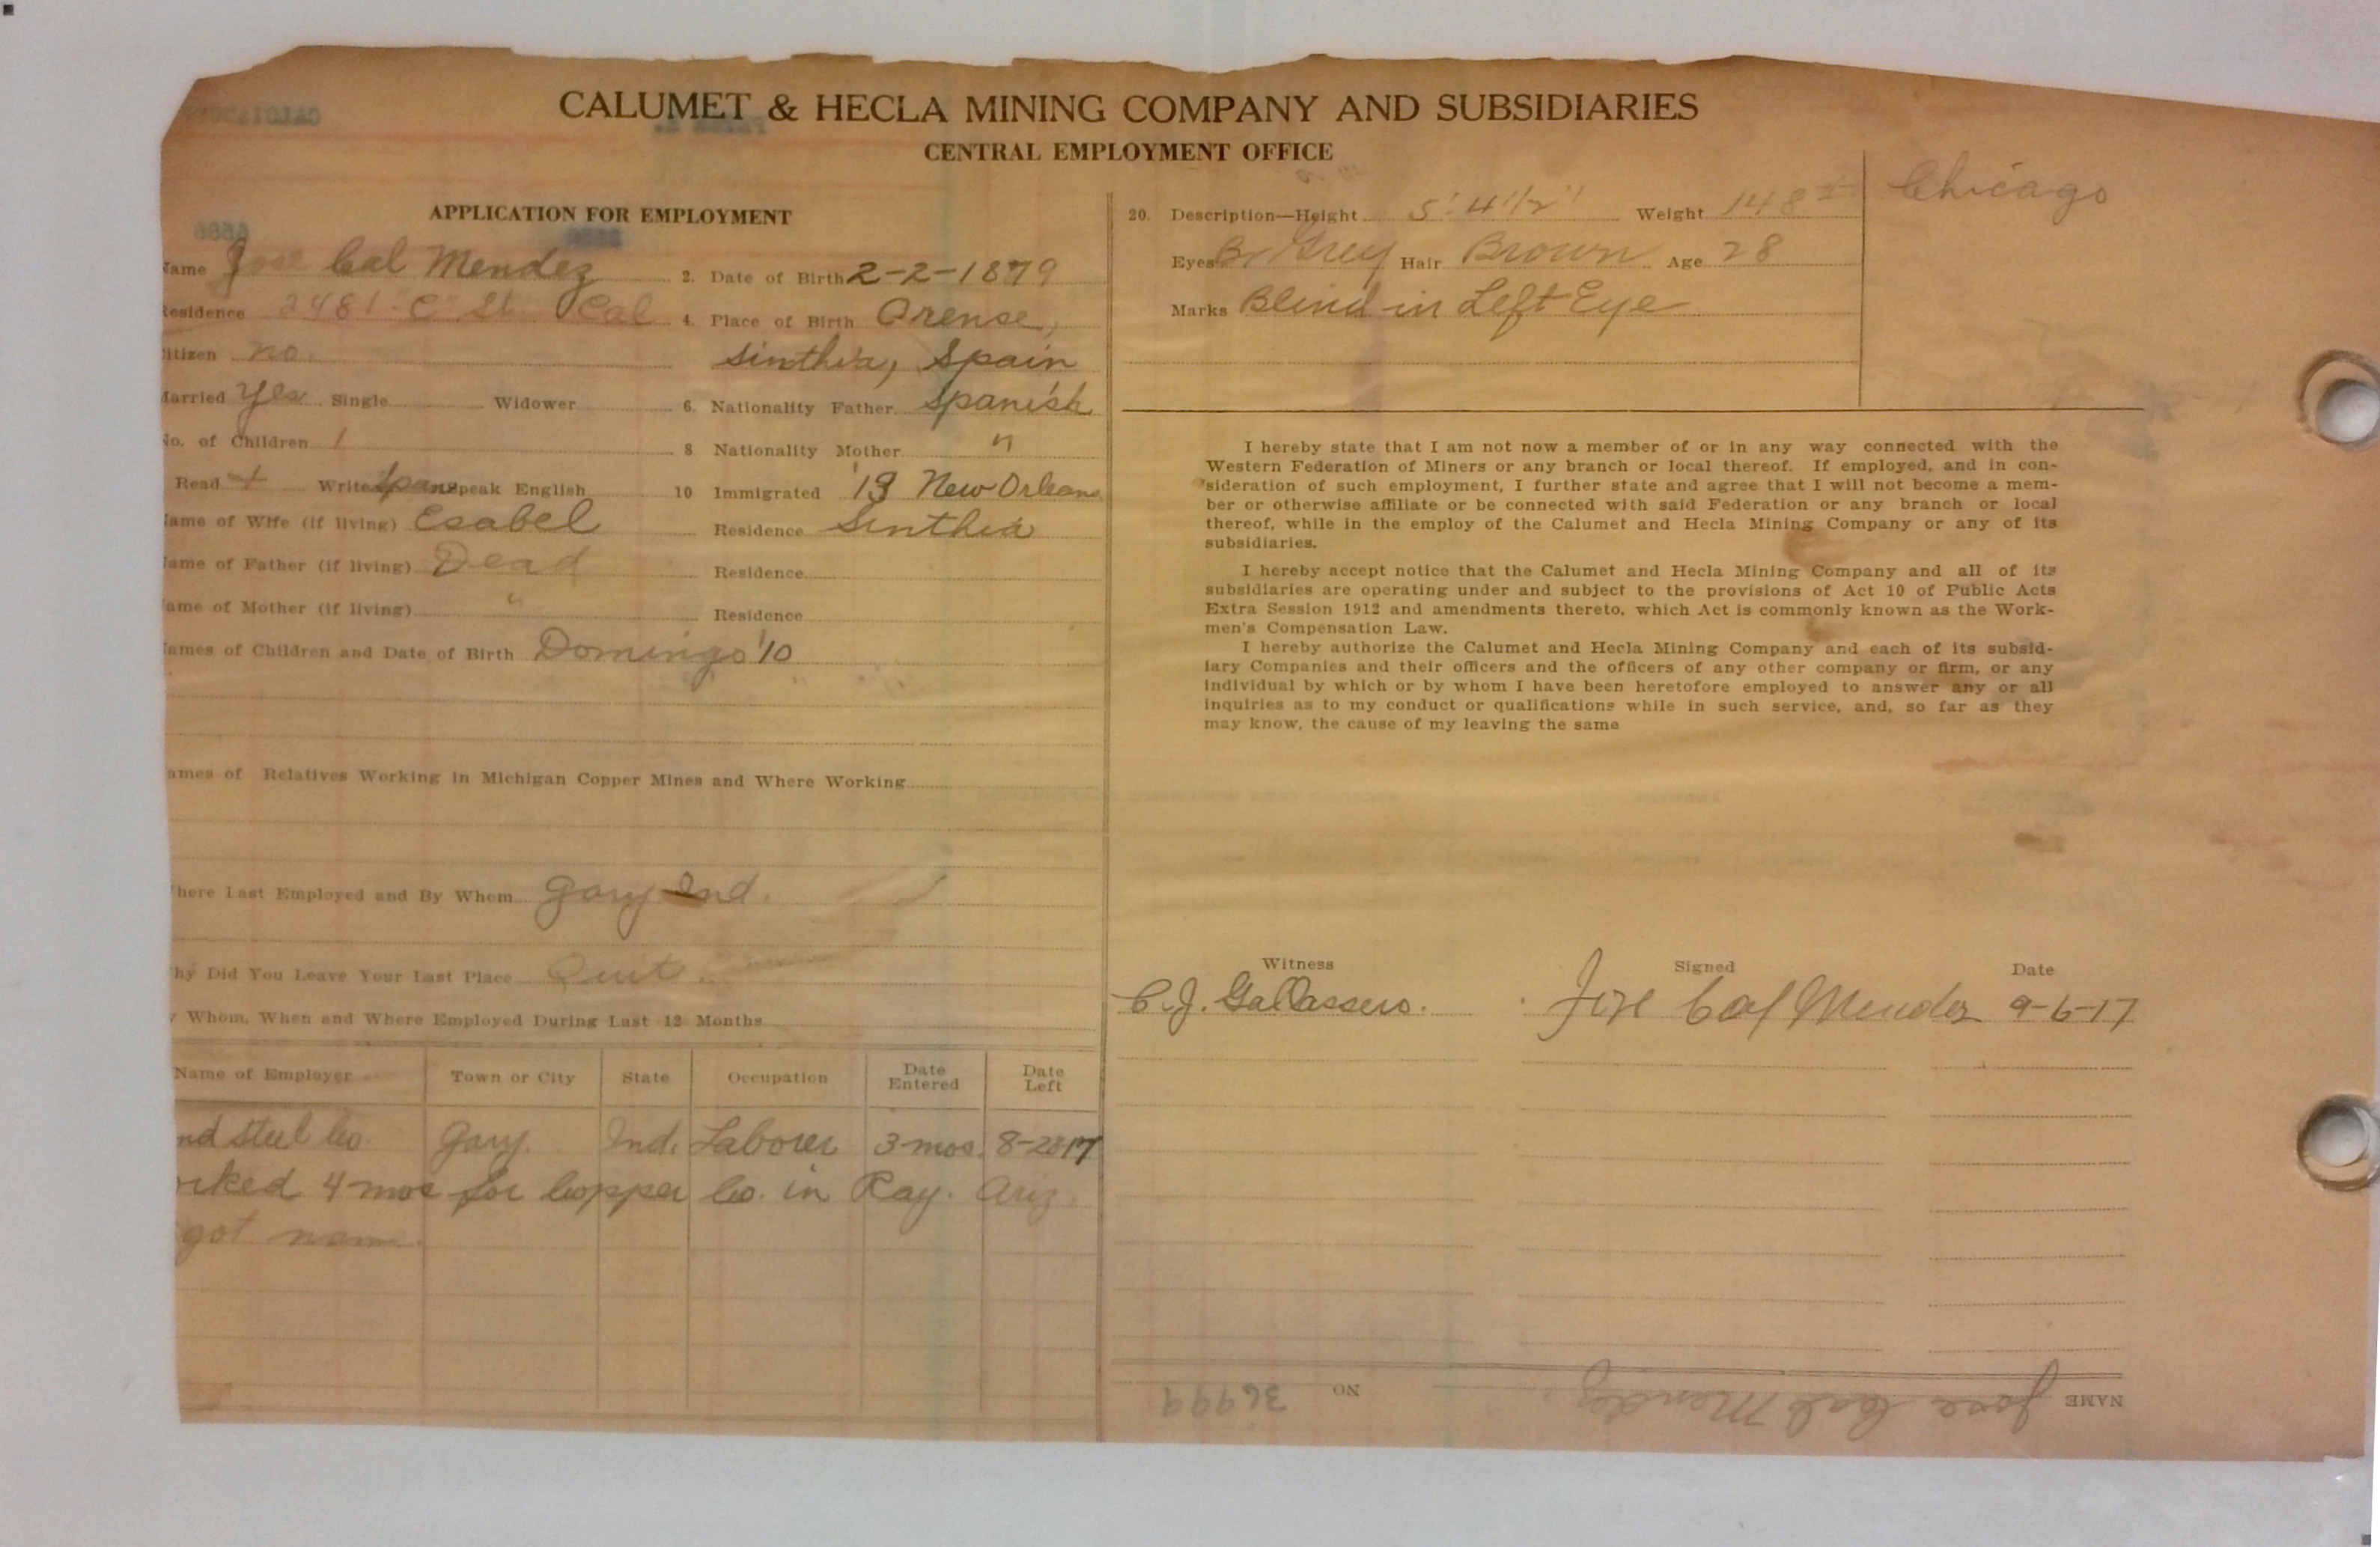 CALUMET & HECLA MINING COMPANY AND SUBSIDIARIES
CENTRAL EMPLOYMENT OFFICE
APPLICATION FOR EMPLOYMENT
ame Jose Cal Mendez 2. Date of Birth 2-2-1879
esidence 2481 C St. Cal 4. Place of Birth Orense,
itizen no. Sinthia, Spain
arried Yes Single Widower 6. Nationality Father Spanish
o. of Children 1 8 Nationality Mother "
Read + Write Span Speak English 10 Immigrated '13 New Orleans
ame of Wife (if living) Esabel Residence Sinthia
ame of Father (if living) Dead Residence
ame of Mother (if living) " Residence
ames of Children and Date of Birth Domingo '10
ames of Relatives Working in Michigan Copper Mines and Where Working
here Last Employed and By Whom Gary Ind.
hy Did You Leave Your Last Place Quit
Whom, When and Where Employed During Last 12 Months
Name of Employer Town or City State Occupation Date Entered Date Left
nd Steel Co. Gary. Ind. Laborer 3 mos. 8-28-17
rked 4 mos for Copper Co. in Ray. Ariz.
got name.
20. Description—Height 5' 4 1/2" Weight 148 Chicago
Eyes Br Grey Hair Brown Age 28
Marks Blind in Left Eye
I hereby state that I am not now a member of or in any way connected with the
Western Federation of Miners or any branch or local thereof. If employed, and in con-
sideration of such employment, I further state and agree that I will not become a mem-
ber or otherwise affiliate or be connected with said Federation or any branch or local
thereof, while in the employ of the Calumet and Hecla Mining Company or any of its
subsidiaries.
I hereby accept notice that the Calumet and Hecla Mining Company and all of its
subsidiaries are operating under and subject to the provisions of Act 10 of Public Acts
Extra Session 1912 and amendments thereto, which Act is commonly known as the Work-
men's Compensation Law.
I hereby authorize the Calumet and Hecla Mining Company and each of its subsid-
iary Companies and their officers and the officers of any other company or firm, or any
individual by which or by whom I have been heretofore employed to answer any or all
inquiries as to my conduct or qualifications while in such service, and, so far as they
may know, the cause of my leaving the same
Witness Signed Date
C. J. Gallassero. Jose Cal Mendez 9-6-17
NAME Jose Cal Mendez. NO 36999